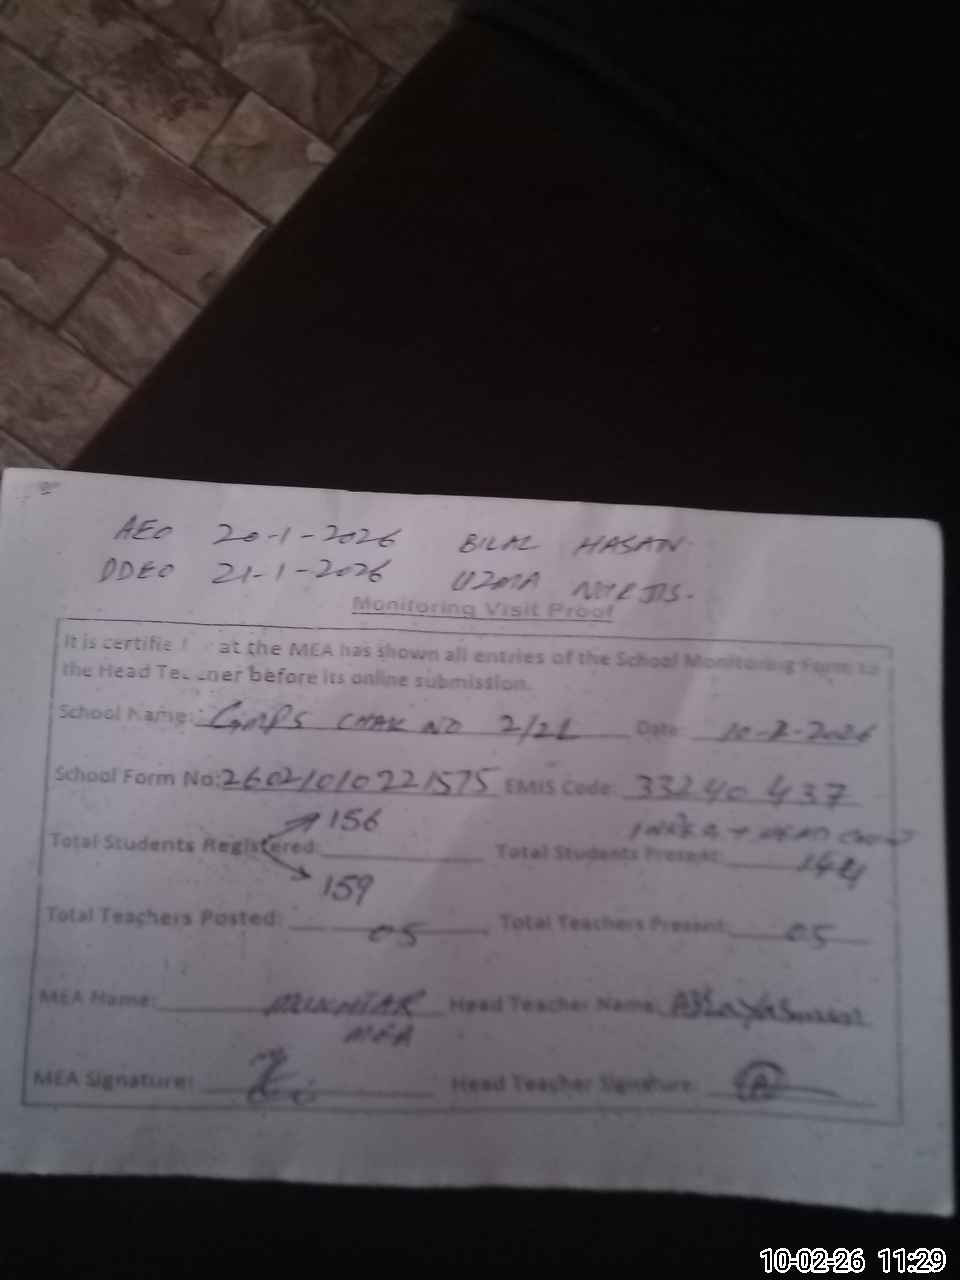 AEO 20-1-2026 BILAL HASAN
DDEO 21-1-2026 UZMA
Monitoring Visit Proof
It is certifie at the MEA has shown all entries of the School Monitoring Form to
the Head Teacher before its online submission.
School Name: GMPS CHAK NO 2/2L Date: 10-2-2026
School Form No: 26021010221575 EMIS Code: 33240437
156 HEAD
Total Students Registered: Total Students Present: 144
159
Total Teachers Posted: 05 Total Teachers Present: 05
MEA Name: MUKHTAR Head Teacher Name:
MEA
MEA Signature: Head Teacher Signature:
10-02-26 11:29